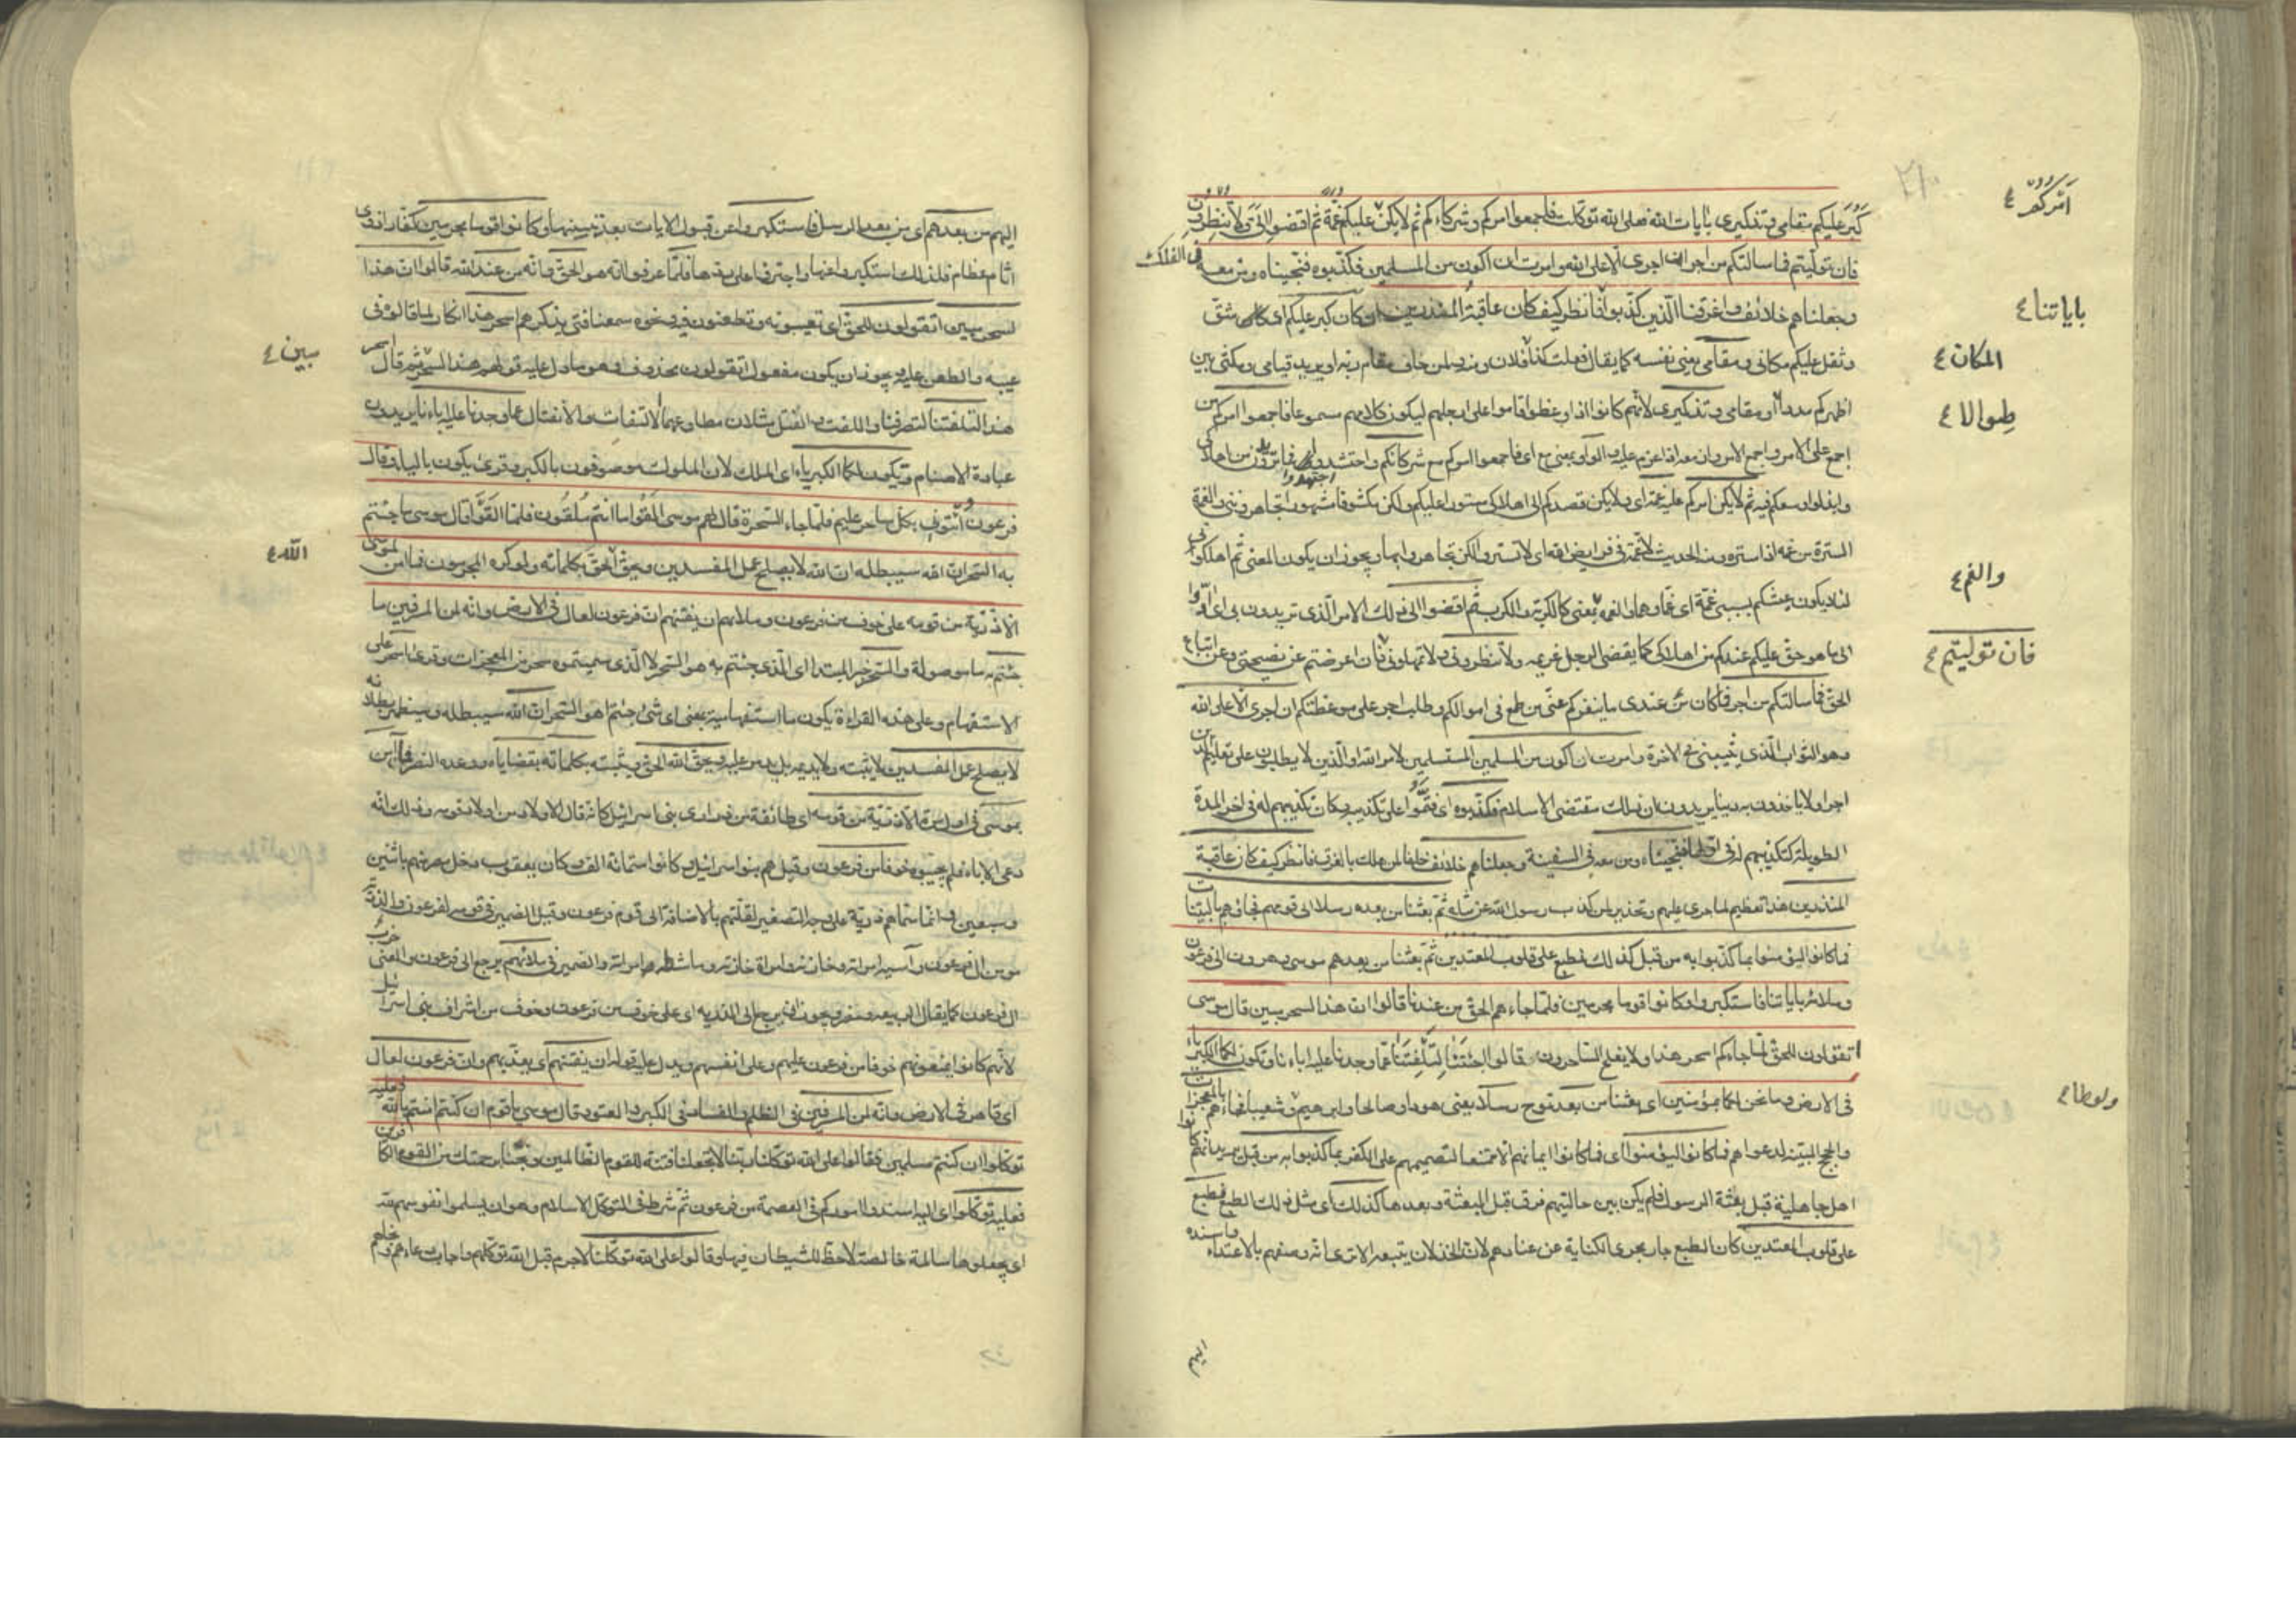 كَبُرَ عليكم مقامى وتذكيرى بايات الله فعلى الله توكلت فاجمعوا امركم وشركاءكم ثم لا يكن عليكم غمة ثم اقضوا الىّ ولا تنظرون
فان توليتم فما سالتكم من اجر ان اجرى الا على الله وامرت ان اكون من المسلمين فكذبوه فنجيناه ومن معه فى الفلك
وجعلناهم خلائف واغرقنا الذين كذبوا فانظر كيف كان عاقبة المنذرين ان كان كبر عليكم اى شق
وثقل عليكم مكانى ومقامى يعنى نفسه كما يقال فعلت كذا لفلان ومنه ولمن خاف مقام ربه او يريد قيامى ومكثى بين
اظهركم مددا او مقامى وتذكيرى لانهم كانوا اذا وعظوا قاموا على ارجلهم ليكون كلامهم مسموعا فاجمعوا امركم من
اجمع على الامر واجمع الامر وازمعه اذا عزم عليه والواو بمعنى مع اى فاجمعوا امركم مع شركائكم واحتشدوا فى اهلاكى
وابذلوا وسعكم فيه ثم لا يكن امركم عليكم غمة اى ولا يكن قصدكم الى اهلاكى مستورا عليكم ولكن مكشوفا مشهورا تجاهروننى والغمة
السترة من غمه اذا ستره ومنه الحديث لا غمة فى فرائض الله اى لا تستر ولكن يجاهر بها ويجوز ان يكون المعنى ثم اهلكونى
لئلا يكون عيشكم بسببى غمة اى غما وهما والغمة بمعنى كالكربة والكرب ثم اقضوا الىّ ذلك الامر الذى تريدون بى اى ادّوا
الىّ ما هو حق عليكم عندكم من اهلاكى كما يقضى الرجل غريمه ولا تنظرونى ولا تمهلونى فان اعرضتم عن نصيحتى وعن اتباع
الحق فما سالتكم من اجر فما كان عندى ما ينفركم عنى من طمع فى اموالكم وطلب اجر على موعظتكم ان اجرى الا على الله
وهو الثواب الذى يثيبنى فى الاخرة وامرت ان اكون من المسلمين المستسلمين لامر الله او الذين لا يطلبون على تعليم الدين
اجرا ولا ياخذون به دينا يريدون ان ذلك مقتضى الاسلام فكذبوه اى فتمّوا على تكذيبه وكان تكذيبهم له فى اخر المدة
الطويلة كتكذيبهم له فى اولها فنجيناه ومن معه فى السفينة وجعلناهم خلائف خلفا لمن هلك بالغرق فانظر كيف كان عاقبة
المنذرين هذا تعظيم لما جرى عليهم وتحذير لمن كذب رسول الله عن مثله ثم بعثنا من بعده رسلا الى قومهم فجاؤهم بالبينات
فما كانوا ليؤمنوا بما كذبوا به من قبل كذلك نطبع على قلوب المعتدين ثم بعثنا من بعدهم موسى وهرون الى فرعون
وملائه باياتنا فاستكبروا وكانوا قوما مجرمين فلما جاءهم الحق من عندنا قالوا ان هذا لسحر مبين قال موسى
اتقولون للحق لما جاءكم اسحر هذا ولا يفلح الساحرون قالوا اجئتنا لتلفتنا عما وجدنا عليه اباءنا وتكون لكما الكبرياء
فى الارض وما نحن لكما بمؤمنين اى بعثنا من بعد نوح رسلا يعنى هودا وصالحا وابرهيم وشعيبا فجاءوهم بالمعجزات
والحجج المبينة لدعواهم فما كانوا ليؤمنوا اى فما كانوا ايمانهم الا ممتنعا لتصميمهم على الكفر بما كذبوا به من قبل يريد انهم كانوا
اهل جاهلية قبل بعثة الرسول فلم يكن بين حالتيهم فرق قبل البعثة وبعدها كذلك اى مثل ذلك الطبع نطبع
على قلوب المعتدين كان الطبع جار مجرى الكناية عن عنادهم لان الخذلان يتبعه الا ترى انه وصفهم بالاعتداء
باياتنا ٤
المكان ٤
طوالا ٤
والغم ٤
فان توليتم ٤
ولوطا ٤
اليهم من بعدهم اى من بعد الرسل فاستكبروا عن قبول الايات بعد تبينها وكانوا قوما مجرمين كفارا ذوى
اثام عظام فلذلك استكبروا عنها واجترؤا على ردها فلما عرفوا انه هو الحق وانه من عند الله قالوا ان هذا
لسحر مبين اتقولون للحق اى تعيبونه وتطعنون فيه ونحوه سمعنا فتى يذكرهم اسحر هذا انكار لما قالوه فى
عيبه والطعن عليه ويجوز ان يكون مفعول اتقولون محذوف وهو ما دل عليه قولهم هذا لسحر ثم قال اسحر
هذا لتلفتنا لتصرفنا واللفت والفتل مثلان مطاوعهما الالتفات والانفتال عما وجدنا عليه اباءنا يريدون
عبادة الاصنام وتكون لكما الكبرياء اى الملك لان الملوك موصوفون بالكبر وقرئ يكون بالياء وقال
فرعون ائتونى بكل ساحر عليم فلما جاء السحرة قال لهم موسى القوا ما انتم ملقون فلما القوا قال موسى ما جئتم
به السحر ان الله سيبطله ان الله لا يصلح عمل المفسدين ويحق الحق بكلماته ولو كره المجرمون فما امن لموسى
الا ذرية من قومه على خوف من فرعون وملائهم ان يفتنهم ان فرعون لعال فى الارض وانه لمن المسرفين ما
جئتم به ما موصولة والسحر خبر المبتدا اى الذى جئتم به هو السحر لا الذى سميتموه سحرا من المعجزات وقرئ السحر على
الاستفهام وعلى هذه القراءة يكون ما استفهامية بمعنى اى شئ جئتم اهو السحر ان الله سيبطله وسيظهر بطلانه
لا يصلح عمل المفسدين لا يثبته ولا يديمه بل يدمر عليه ويحق الله الحق ويثبته بكلماته بقضاياه ووعده النصر فما امن
بموسى فى اول امره الا ذرية من قومه اى طائفة من ذرارى بنى اسرائيل كانه قال الا اولاد من اولاد قومه وذلك انه
دعى الاباء فلم يجيبوه خوفا من فرعون وقيل هم بنو اسرائيل وكانوا ستمائة الف وكان يعقوب دخل مصر منهم باثنين
وسبعين وانما سماهم ذرية على وجه التصغير لقلتهم بالاضافة الى قوم فرعون وقيل الضمير فى قومه لفرعون والذرية
مومن ال فرعون واسية امراته وخازنه وامراة خازنه وماشطة امراته والضمير فى ملائهم يرجع الى فرعون والمعنى
ال فرعون كما يقال ربيعة ومضر ويجوز ان يرجع الى الذرية اى على خوف من فرعون وخوف من اشراف بنى اسرائيل
لانهم كانوا يمنعونهم خوفا من فرعون عليهم وعلى انفسهم ويدل عليه قوله ان يفتنهم اى يعذبهم وان فرعون لعال
اى قاهر فى الارض وانه لمن المسرفين فى الظلم والفساد فى الكبر والعتو وقال موسى يا قوم ان كنتم امنتم بالله فعليه
توكلوا ان كنتم مسلمين فقالوا على الله توكلنا ربنا لا تجعلنا فتنة للقوم الظالمين ونجنا برحمتك من القوم الكافرين
فعليه توكلوا اى اليه اسندوا اموركم فى العصمة من فرعون ثم شرط فى التوكل الاسلام وهو ان يسلموا نفوسهم لله
اى يجعلوها سالمة خالصة لاحظ للشيطان فيها وقالوا على الله توكلنا لاجرم قبل الله توكلهم واجاب دعاءهم
مبين ٤
الله ٤